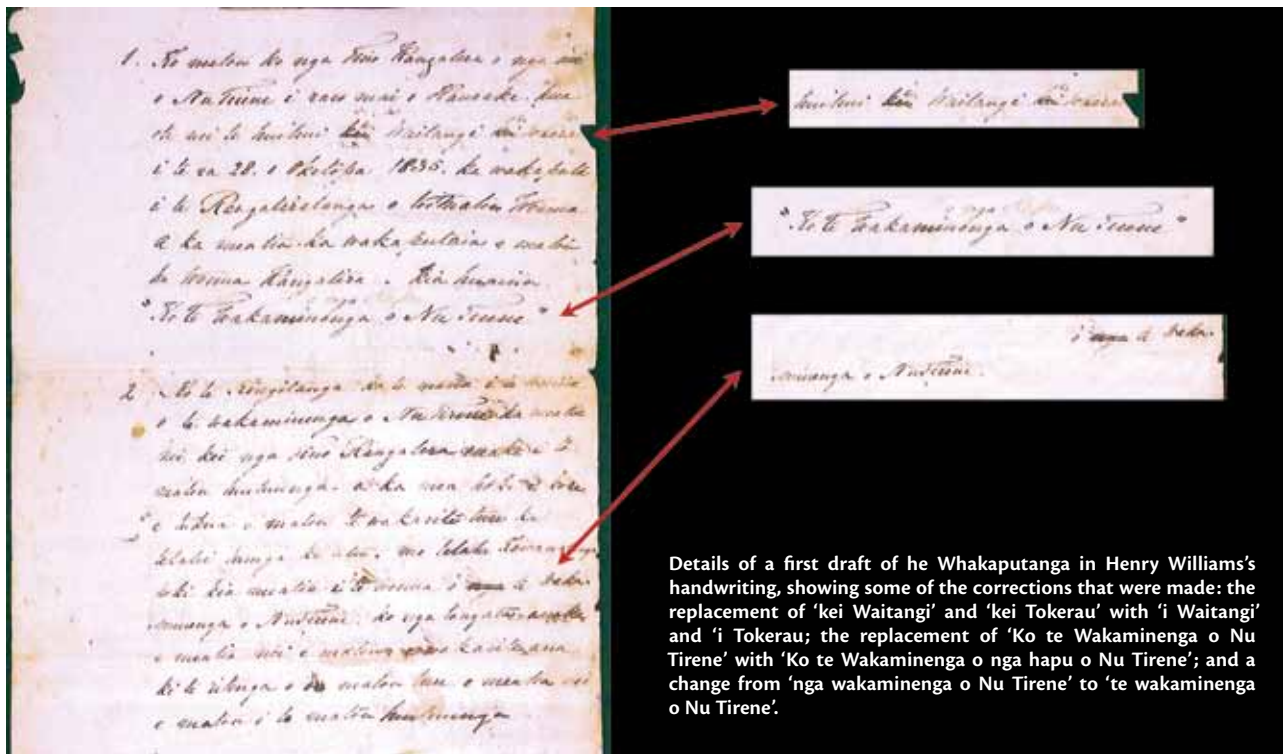 1. Ko matou ko nga Tino Rangatira o nga iwi
o Nu Tirene i raro mai o Haurake kua
oti nei te huihui kei Waitangi kei
i te ra 28. o Oketopa 1835. ka wakaputa
i te Rangatiratanga o to matou wenua
a ka meatia ka wakaputaia e matou
he wenua Rangatira. kia huaina
"Ko te Wakaminenga o nga hapu o Nu Tirene"
2 Ko te Kingitanga ko te mana i te wenua
o te wakaminenga o Nu Tirene ka meatia
nei kei nga Tino Rangatira anake i to
matou huihuinga. a ka mea hoki e kore
e tukua e matou te wakarite ture ke
tetahi hunga ke atu. me tetahi Kawanatanga
hoki kia meatia i te wenua i nga te waka-
minenga o Nu Tirene. ko nga tangata anake
e meatia nei e matou e wakarite ana
ki te ritenga o matou ture e meatia nei
e matou i to matou huihuinga.
huihui kei Waitangi kei
"Ko te Wakaminenga o nga hapu o Nu Tirene"
i nga te waka-
minenga o Nu Tirene.
Details of a first draft of he Whakaputanga in Henry Williams's
handwriting, showing some of the corrections that were made: the
replacement of ‘kei Waitangi’ and ‘kei Tokerau’ with ‘i Waitangi’
and ‘i Tokerau; the replacement of ‘Ko te Wakaminenga o Nu
Tirene’ with ‘Ko te Wakaminenga o nga hapu o Nu Tirene’; and a
change from ‘nga wakaminenga o Nu Tirene’ to ‘te wakaminenga
o Nu Tirene’.